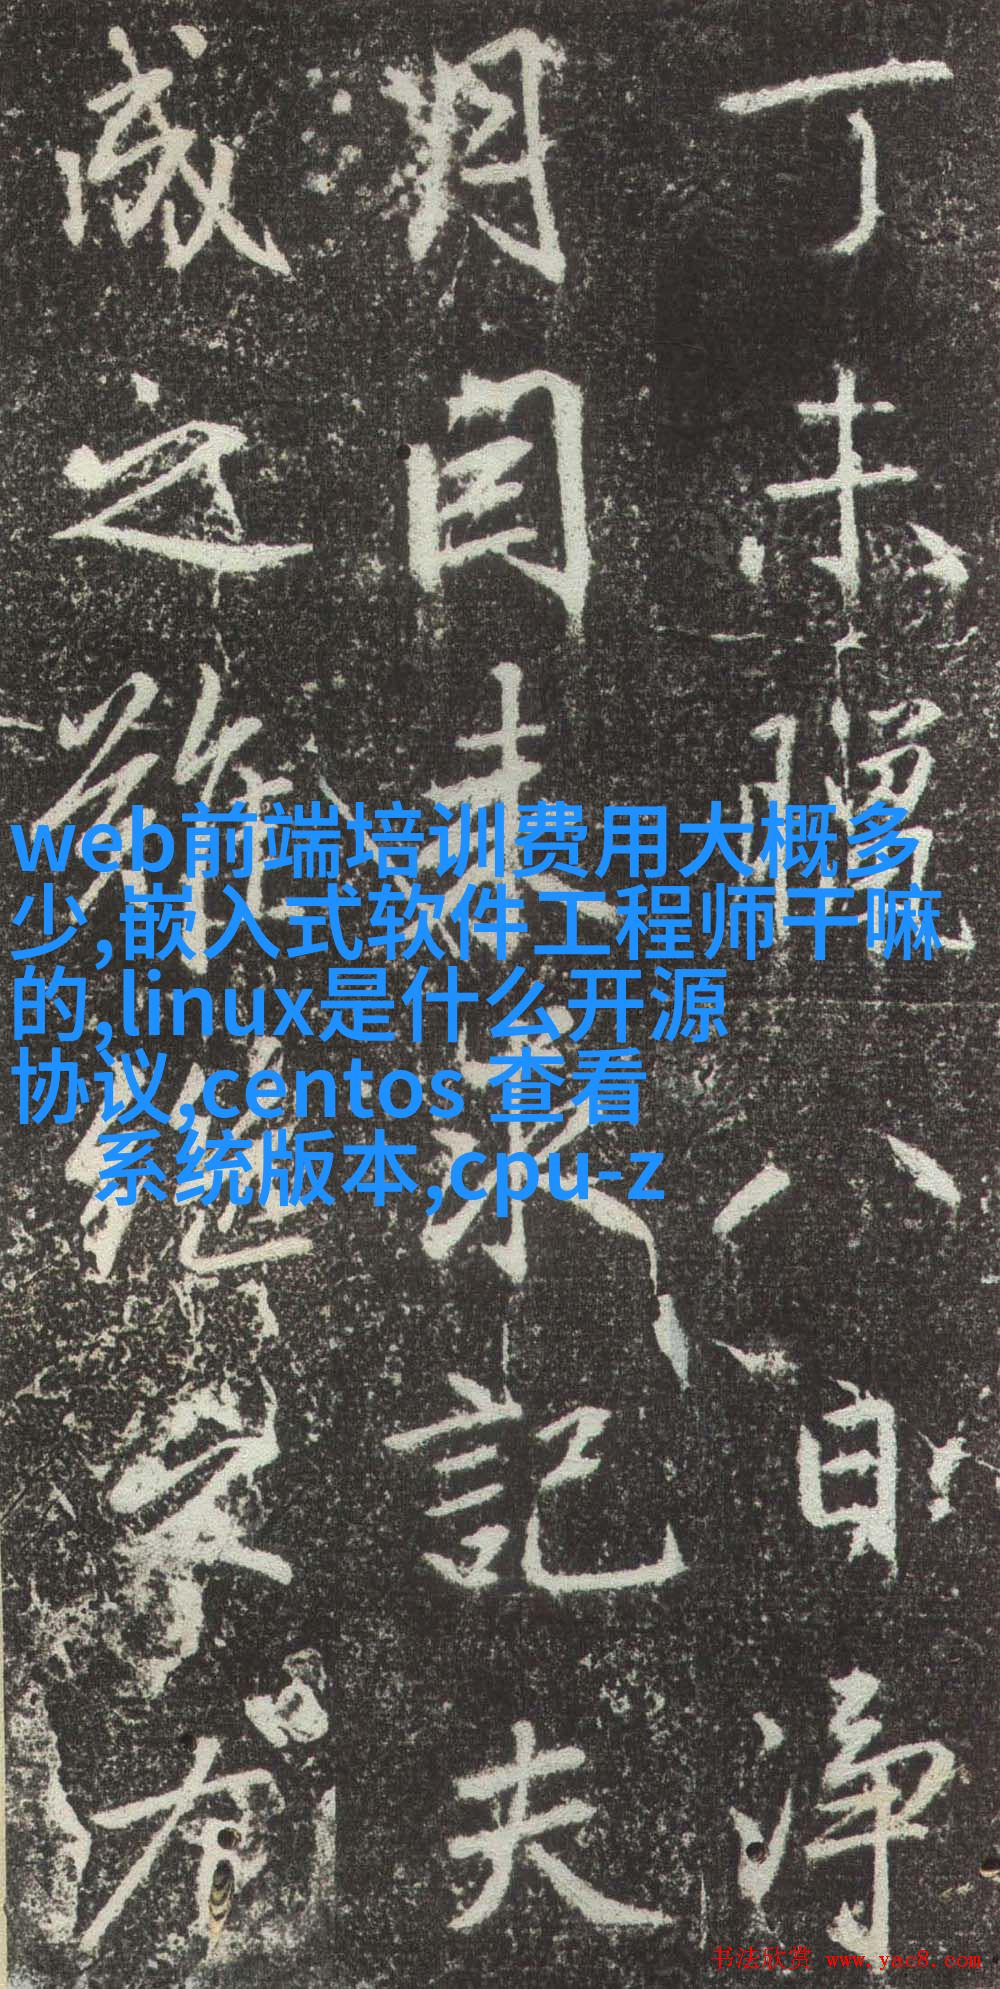 丁未臘八日净
月因来求記夫
成之難
web前端培训费用大概多
少,嵌入式软件工程师干嘛
的,linux是什么开源
协议,centos 查看
系统版本,cpu-z
书法欣赏 www.yac8.com